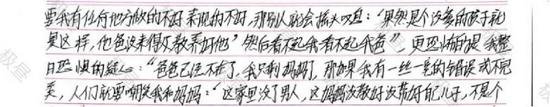 要我有任何地方做的不好 表现的不好,那别人就会摇头叹息:“果然是个没爸的孩子就
是这样,他爸没来得及教养好他”然后看不起我看不起我爸”,更恐怖的是我整
日恐惧的疑心:“爸爸已经不在了,我只剩妈妈,那如果我有一丝一毫的错误或不完
美,人们就要嘲笑我和妈妈:“这家里没了男人,这妈妈没教好没养好自己儿子,不是个